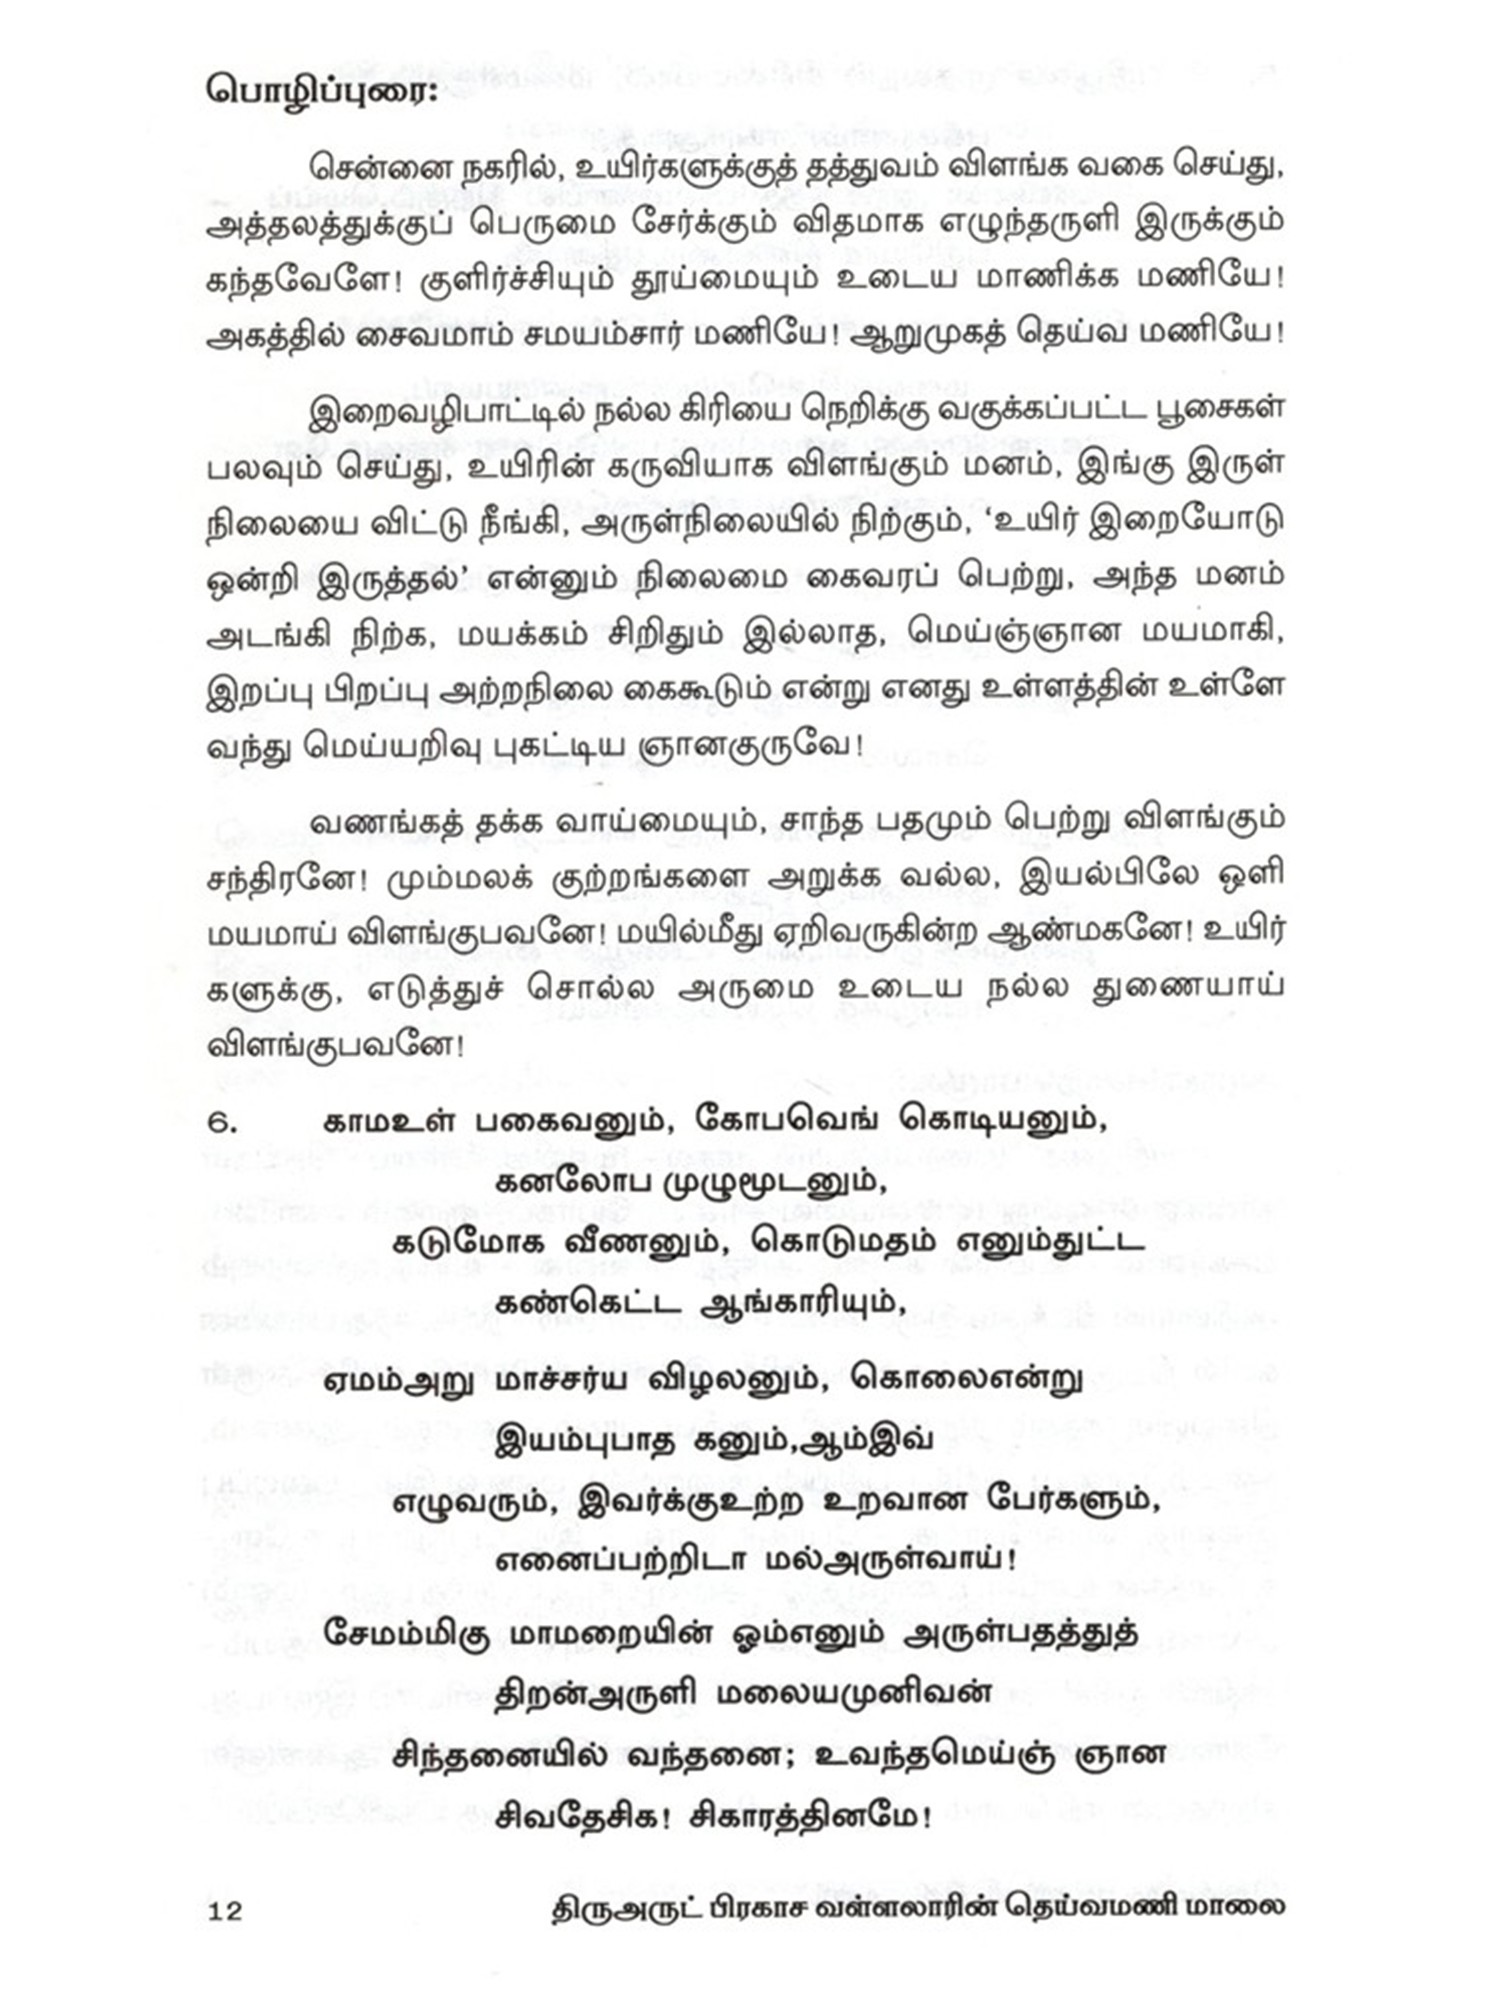 பொழிப்புரை:
சென்னை நகரில், உயிர்களுக்குத் தத்துவம் விளங்க வகை செய்து,
அத்தலத்துக்குப் பெருமை சேர்க்கும் விதமாக எழுந்தருளி இருக்கும்
கந்தவேளே! குளிர்ச்சியும் தூய்மையும் உடைய மாணிக்க மணியே!
அகத்தில் சைவமாம் சமயம்சார் மணியே! ஆறுமுகத் தெய்வ மணியே!
இறைவழிபாட்டில் நல்ல கிரியை நெறிக்கு வகுக்கப்பட்ட பூசைகள்
பலவும் செய்து, உயிரின் கருவியாக விளங்கும் மனம், இங்கு இருள்
நிலையை விட்டு நீங்கி, அருள்நிலையில் நிற்கும், ‘உயிர் இறையோடு
ஒன்றி இருத்தல்’ என்னும் நிலைமை கைவரப் பெற்று, அந்த மனம்
அடங்கி நிற்க, மயக்கம் சிறிதும் இல்லாத, மெய்ஞ்ஞான மயமாகி,
இறப்பு பிறப்பு அற்றநிலை கைகூடும் என்று எனது உள்ளத்தின் உள்ளே
வந்து மெய்யறிவு புகட்டிய ஞானகுருவே!
வணங்கத் தக்க வாய்மையும், சாந்த பதமும் பெற்று விளங்கும்
சந்திரனே! மும்மலக் குற்றங்களை அறுக்க வல்ல, இயல்பிலே ஒளி
மயமாய் விளங்குபவனே! மயில்மீது ஏறிவருகின்ற ஆண்மகனே! உயிர்
களுக்கு, எடுத்துச் சொல்ல அருமை உடைய நல்ல துணையாய்
விளங்குபவனே!
6. காமஉள் பகைவனும், கோபவெங் கொடியனும்,
கனலோப முழுமூடனும்,
கடுமோக வீணனும், கொடுமதம் எனும்துட்ட
கண்கெட்ட ஆங்காரியும்,
ஏமம்அறு மாச்சர்ய விழலனும், கொலைஎன்று
இயம்புபாத கனும்,ஆம்இவ்
எழுவரும், இவர்க்குஉற்ற உறவான பேர்களும்,
எனைப்பற்றிடா மல்அருள்வாய்!
சேமம்மிகு மாமறையின் ஓம்எனும் அருள்பதத்துத்
திறன்அருளி மலையமுனிவன்
சிந்தனையில் வந்தனை; உவந்தமெய்ஞ் ஞான
சிவதேசிக! சிகாரத்தினமே!
12 திருஅருட் பிரகாச வள்ளலாரின் தெய்வமணி மாலை